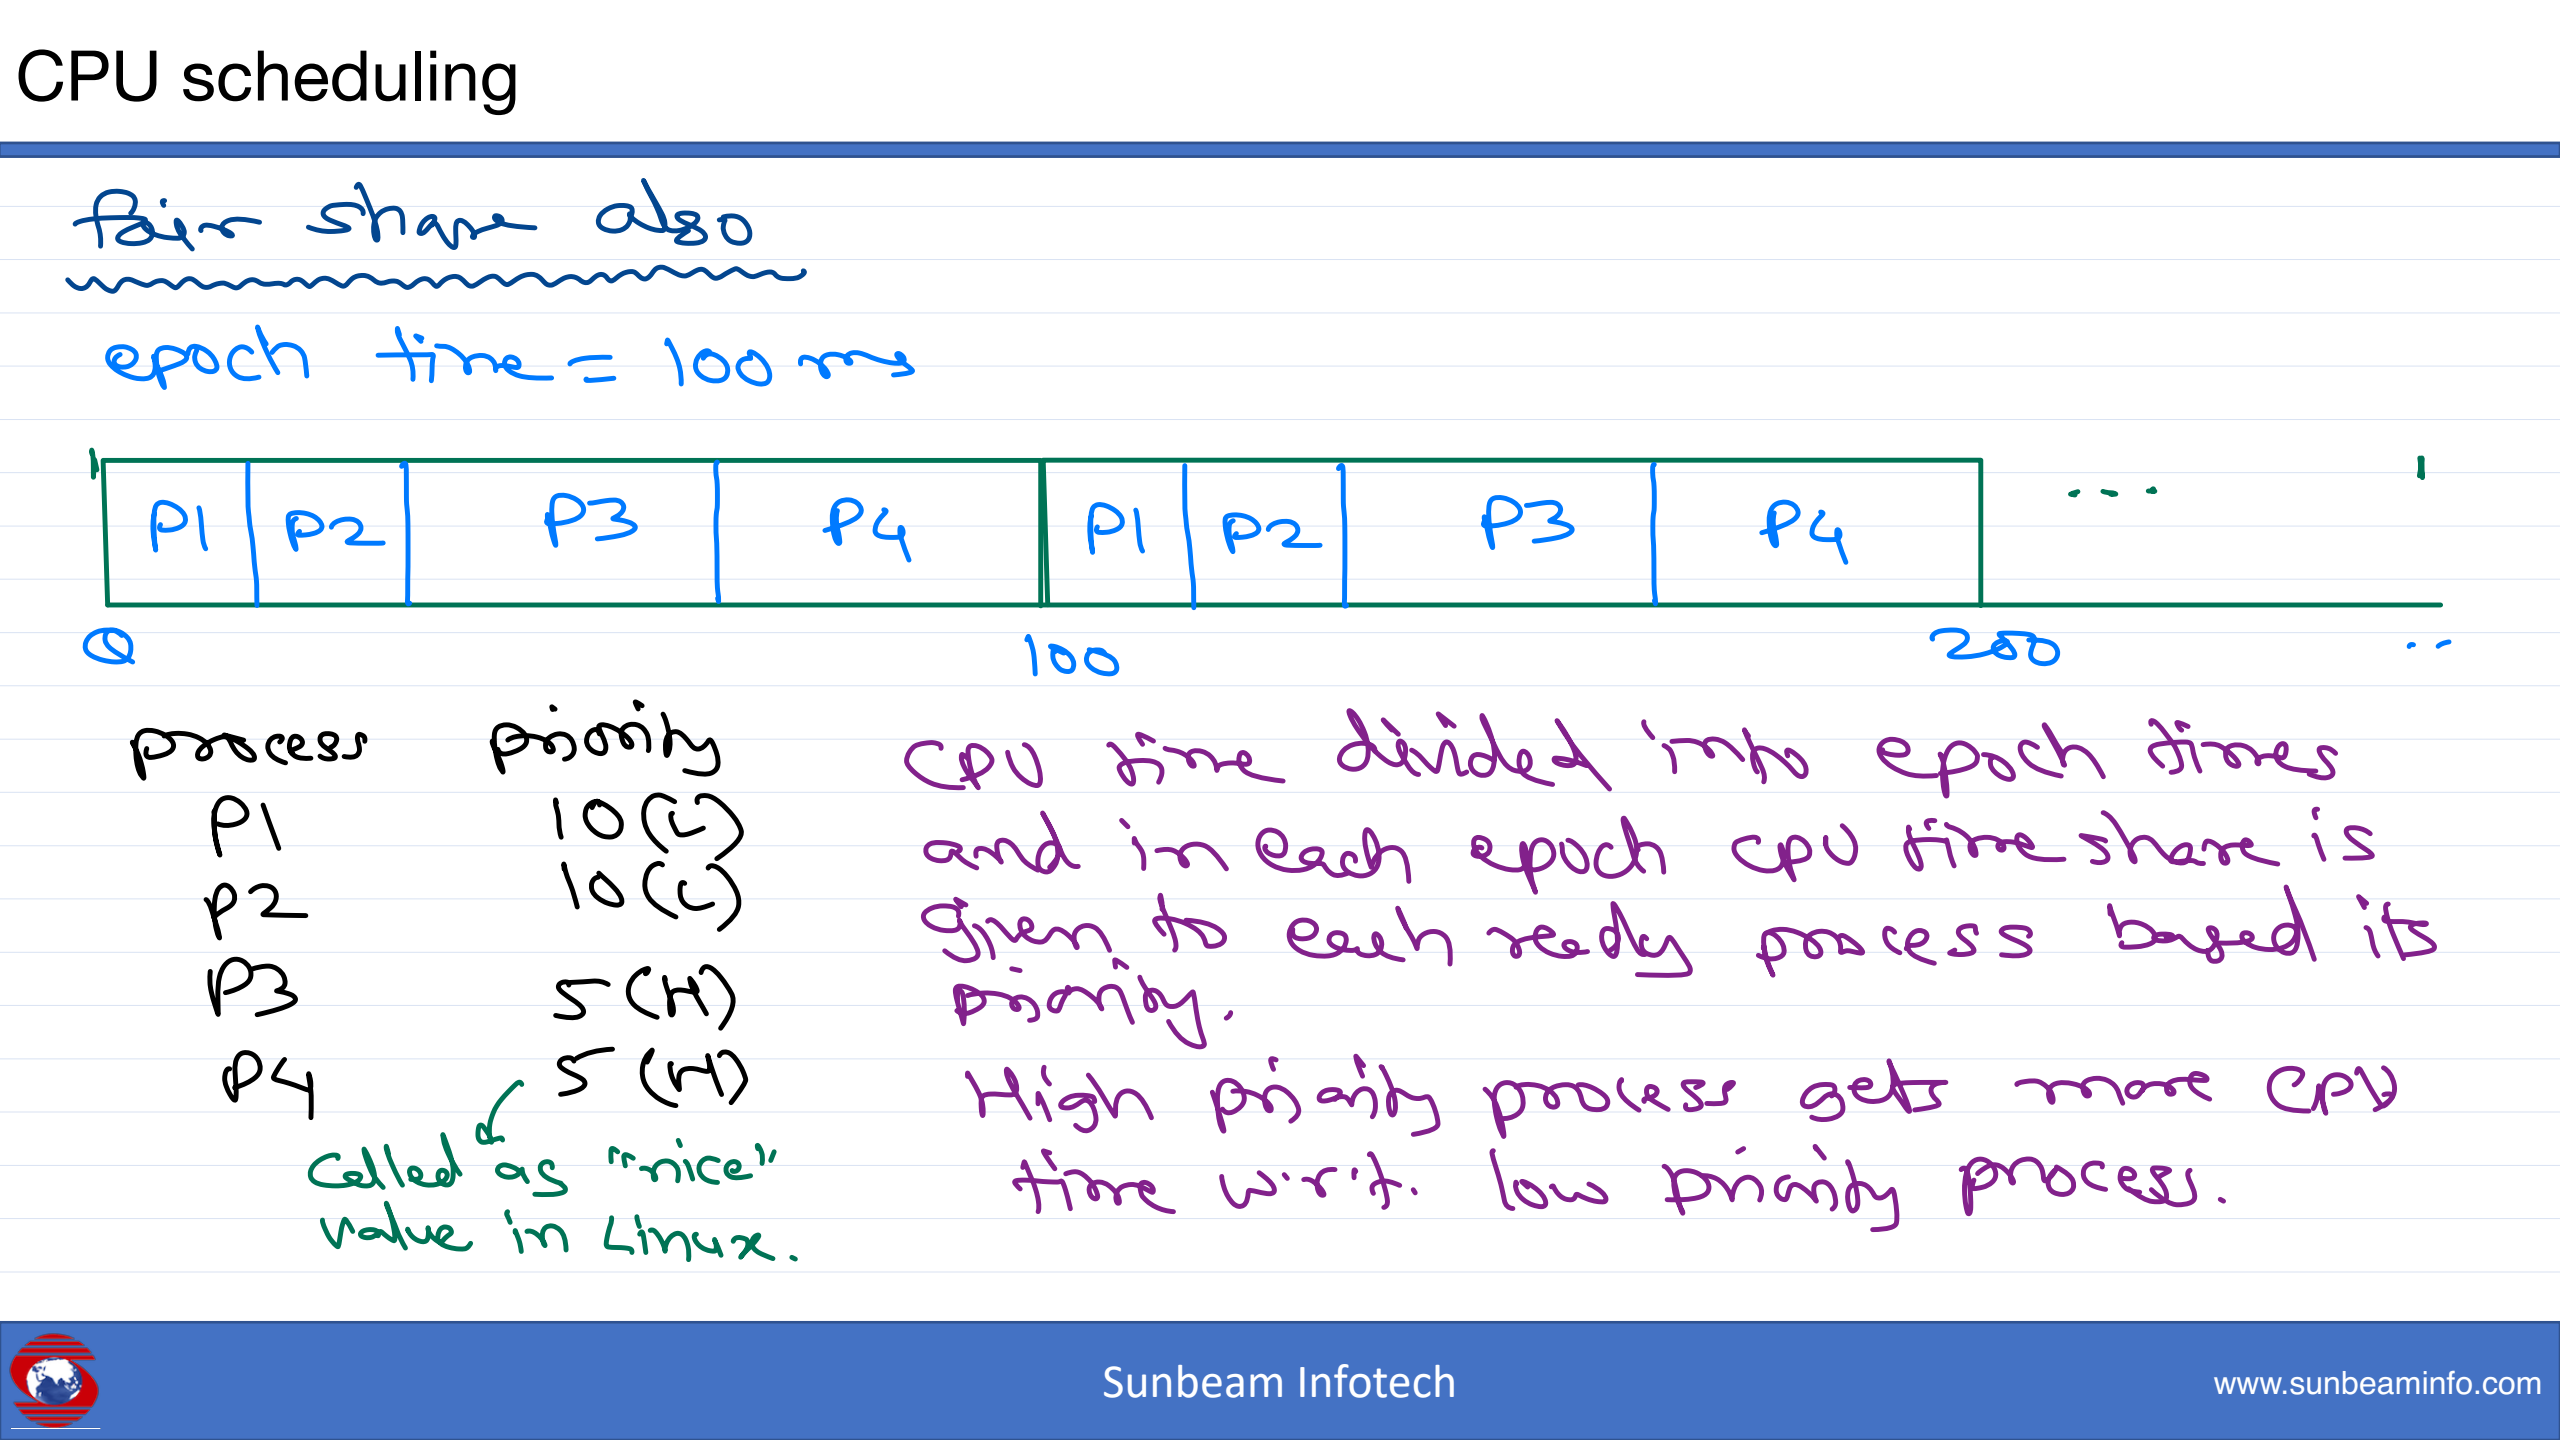 CPU scheduling
fair share algo
epoch time = 100 ms
P1 P2 P3 P4 P1 P2 P3 P4 ...
0 100 200 ..
process priority
P1 10 (L)
P2 10 (L)
P3 5 (H)
P4 5 (H)
called as "nice"
value in Linux.
CPU time divided into epoch times
and in each epoch CPU time share is
given to each ready process based its
priority.
High priority process gets more CPU
time w.r.t. low priority process.
Sunbeam Infotech
www.sunbeaminfo.com